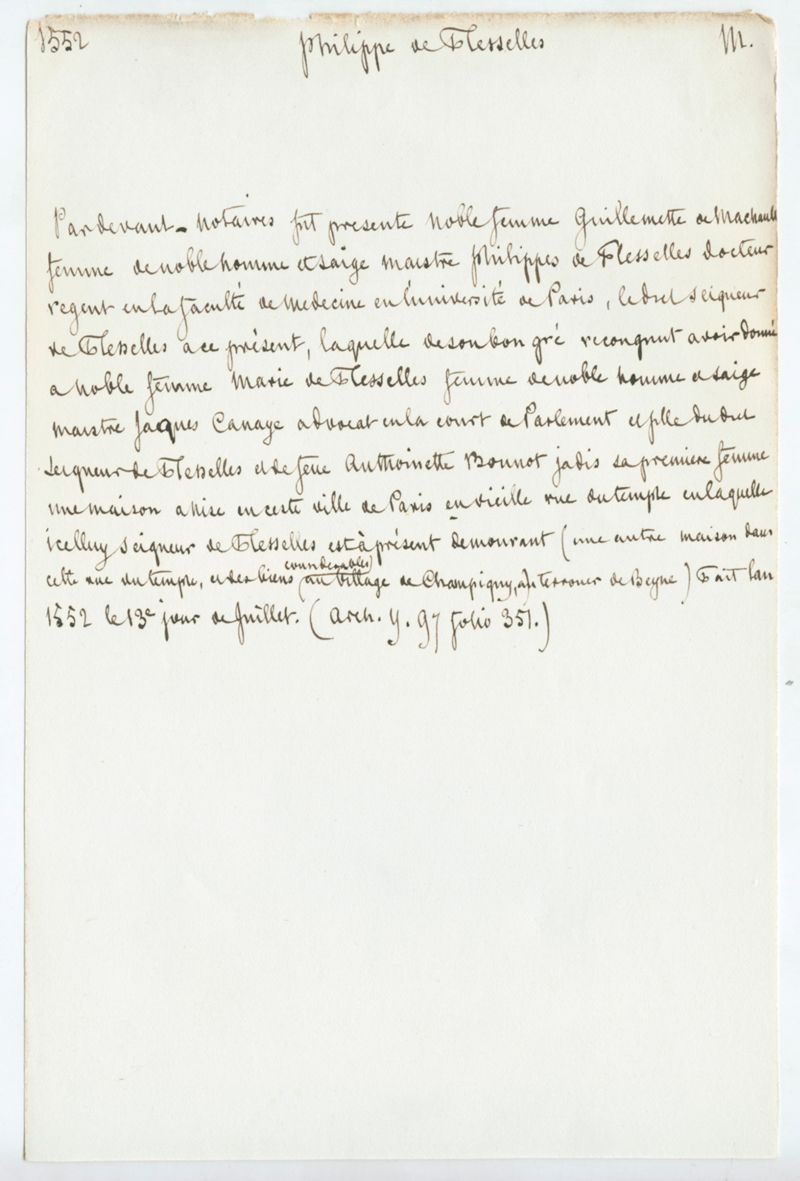 1552 Philippe de Flesselles M.
Pardevant notaires fut presente noble femme Guillemette de Machault
femme de noble homme et saige maistre Philippes de Flesselles docteur
regent en la faculté de medecine en l'université de Paris, ledict seigneur
de Flesselles a ce présent, laquelle de son bon gré recongnut avoir donné
a noble femme Marie de Flesselles femme de noble homme et saige
maistre Jaques Canaye advocat en la court de Parlement et fille dudict
Seigneur de Flesselles et de feue Anthoinette Bonnot jadis sa premiere femme
une maison assise en ceste ville de Paris en vieille rue du temple en laquelle
icelluy Seigneur de Flesselles est à présent demourant (une autre maison dans
cette rue du temple, et des biens (considerables) au village de Champigny, au terrouer de Beyne) Fait lan
1552 le 13e jour de Juillet. (Arch. Y. 97 folio 351.)